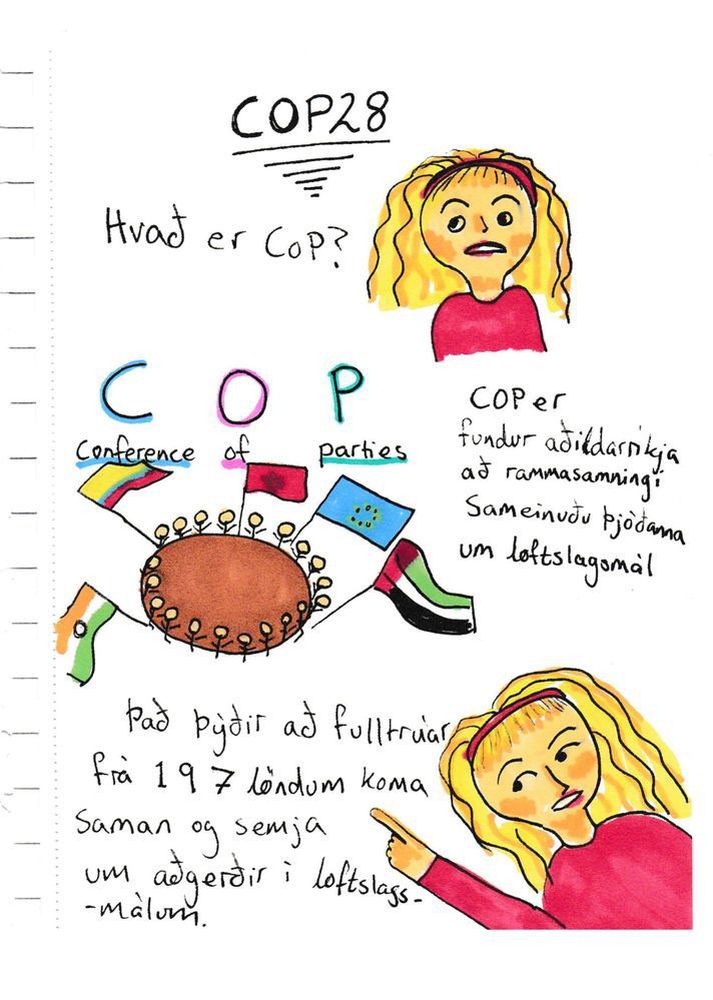 COP28
Hvað er COP?
C O P
Conference of parties
COP er
fundur aðildarríkja
að rammasamningi
Sameinuðu þjóðanna
um loftslagsmál
Það þýðir að fulltrúar
frá 197 löndum koma
saman og semja
um aðgerðir í loftslags-
-málum.